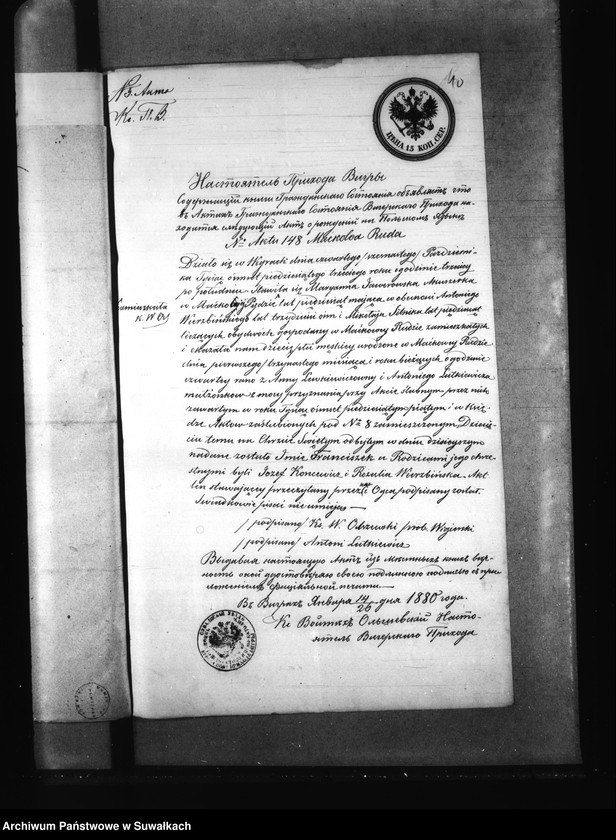 № 3. Акта
Кс. П. В.
40
ЦѢНА 15 КОП. СЕР.
Настоятель Прихода Вигры
Содержащій книги Гражданскаго Состоянія объявляетъ что
въ Актахъ Гражданскаго Состоянія Вигерскаго Прихода на-
ходится слѣдующій Актъ о рожденіи на Польскомъ Языкѣ
№ Aktu 148 Maćkowa Ruda
Działo się w Wigrach dnia czwartego /szesnastego/ Październi-
ka Tysiąc ośmset pięćdziesiątego trzeciego roku o godzinie trzeciej
po południu. Stawiła się Maryanna Jaworowska Akuszerka
zamieszkała
K. W. O.
w Maćkowej Rudzie lat pięćdziesiąt mająca w obecności Antoniego
Wierzbińskiego lat trzydzieści ośm i Mikołaja lat pięćdziesiąt
liczących obydwóch Gospodarzy w Maćkowy Rudzie zamieszkałych
i okazała nam dziecię płci męskiej urodzone w Maćkowy Rudzie
dnia pierwszego /trzynastego miesiąca i roku bieżących o godzinie
czwartej rano z Anny Lewkiewiczowny i Antoniego Lutkiewicza
małżonków z mocy przyznania przy Akcie ślubnym przez nich
zawartym w roku Tysiąc ośmset pięćdziesiątym piątym i w Księ-
dze Aktów zaślubionych pod № 8 zamieszczonym. Dziecię-
ciu temu na Chrzcie Świętym odbytym w dniu dzisiejszym
nadane zostało Imie Franciszek a Rodzicami jego chrze-
stnymi byli Jozef Koncewicz i Rozalia Wierzbińska. Akt
ten stawający przeczytany przez Ojca podpisany został.
Świadkowie pisać nie umieją —
/podpisano/ Ks. W. Olszewski prob. Wigierski
/podpisano/ Antoni Lutkiewicz
Выдавая настоящую Актъ изъ мѣстныхъ книгъ вѣр-
ность оной удостовѣряю своею подлинною подписью съ при-
ложеніемъ оффиціальной печати. —
Въ Виграхъ Января 14/26 дня 1880 года.
Кс Войтѣхъ Ольшевскій Насто-
ятель Вигерскаго Прихода
Archiwum Państwowe w Suwałkach